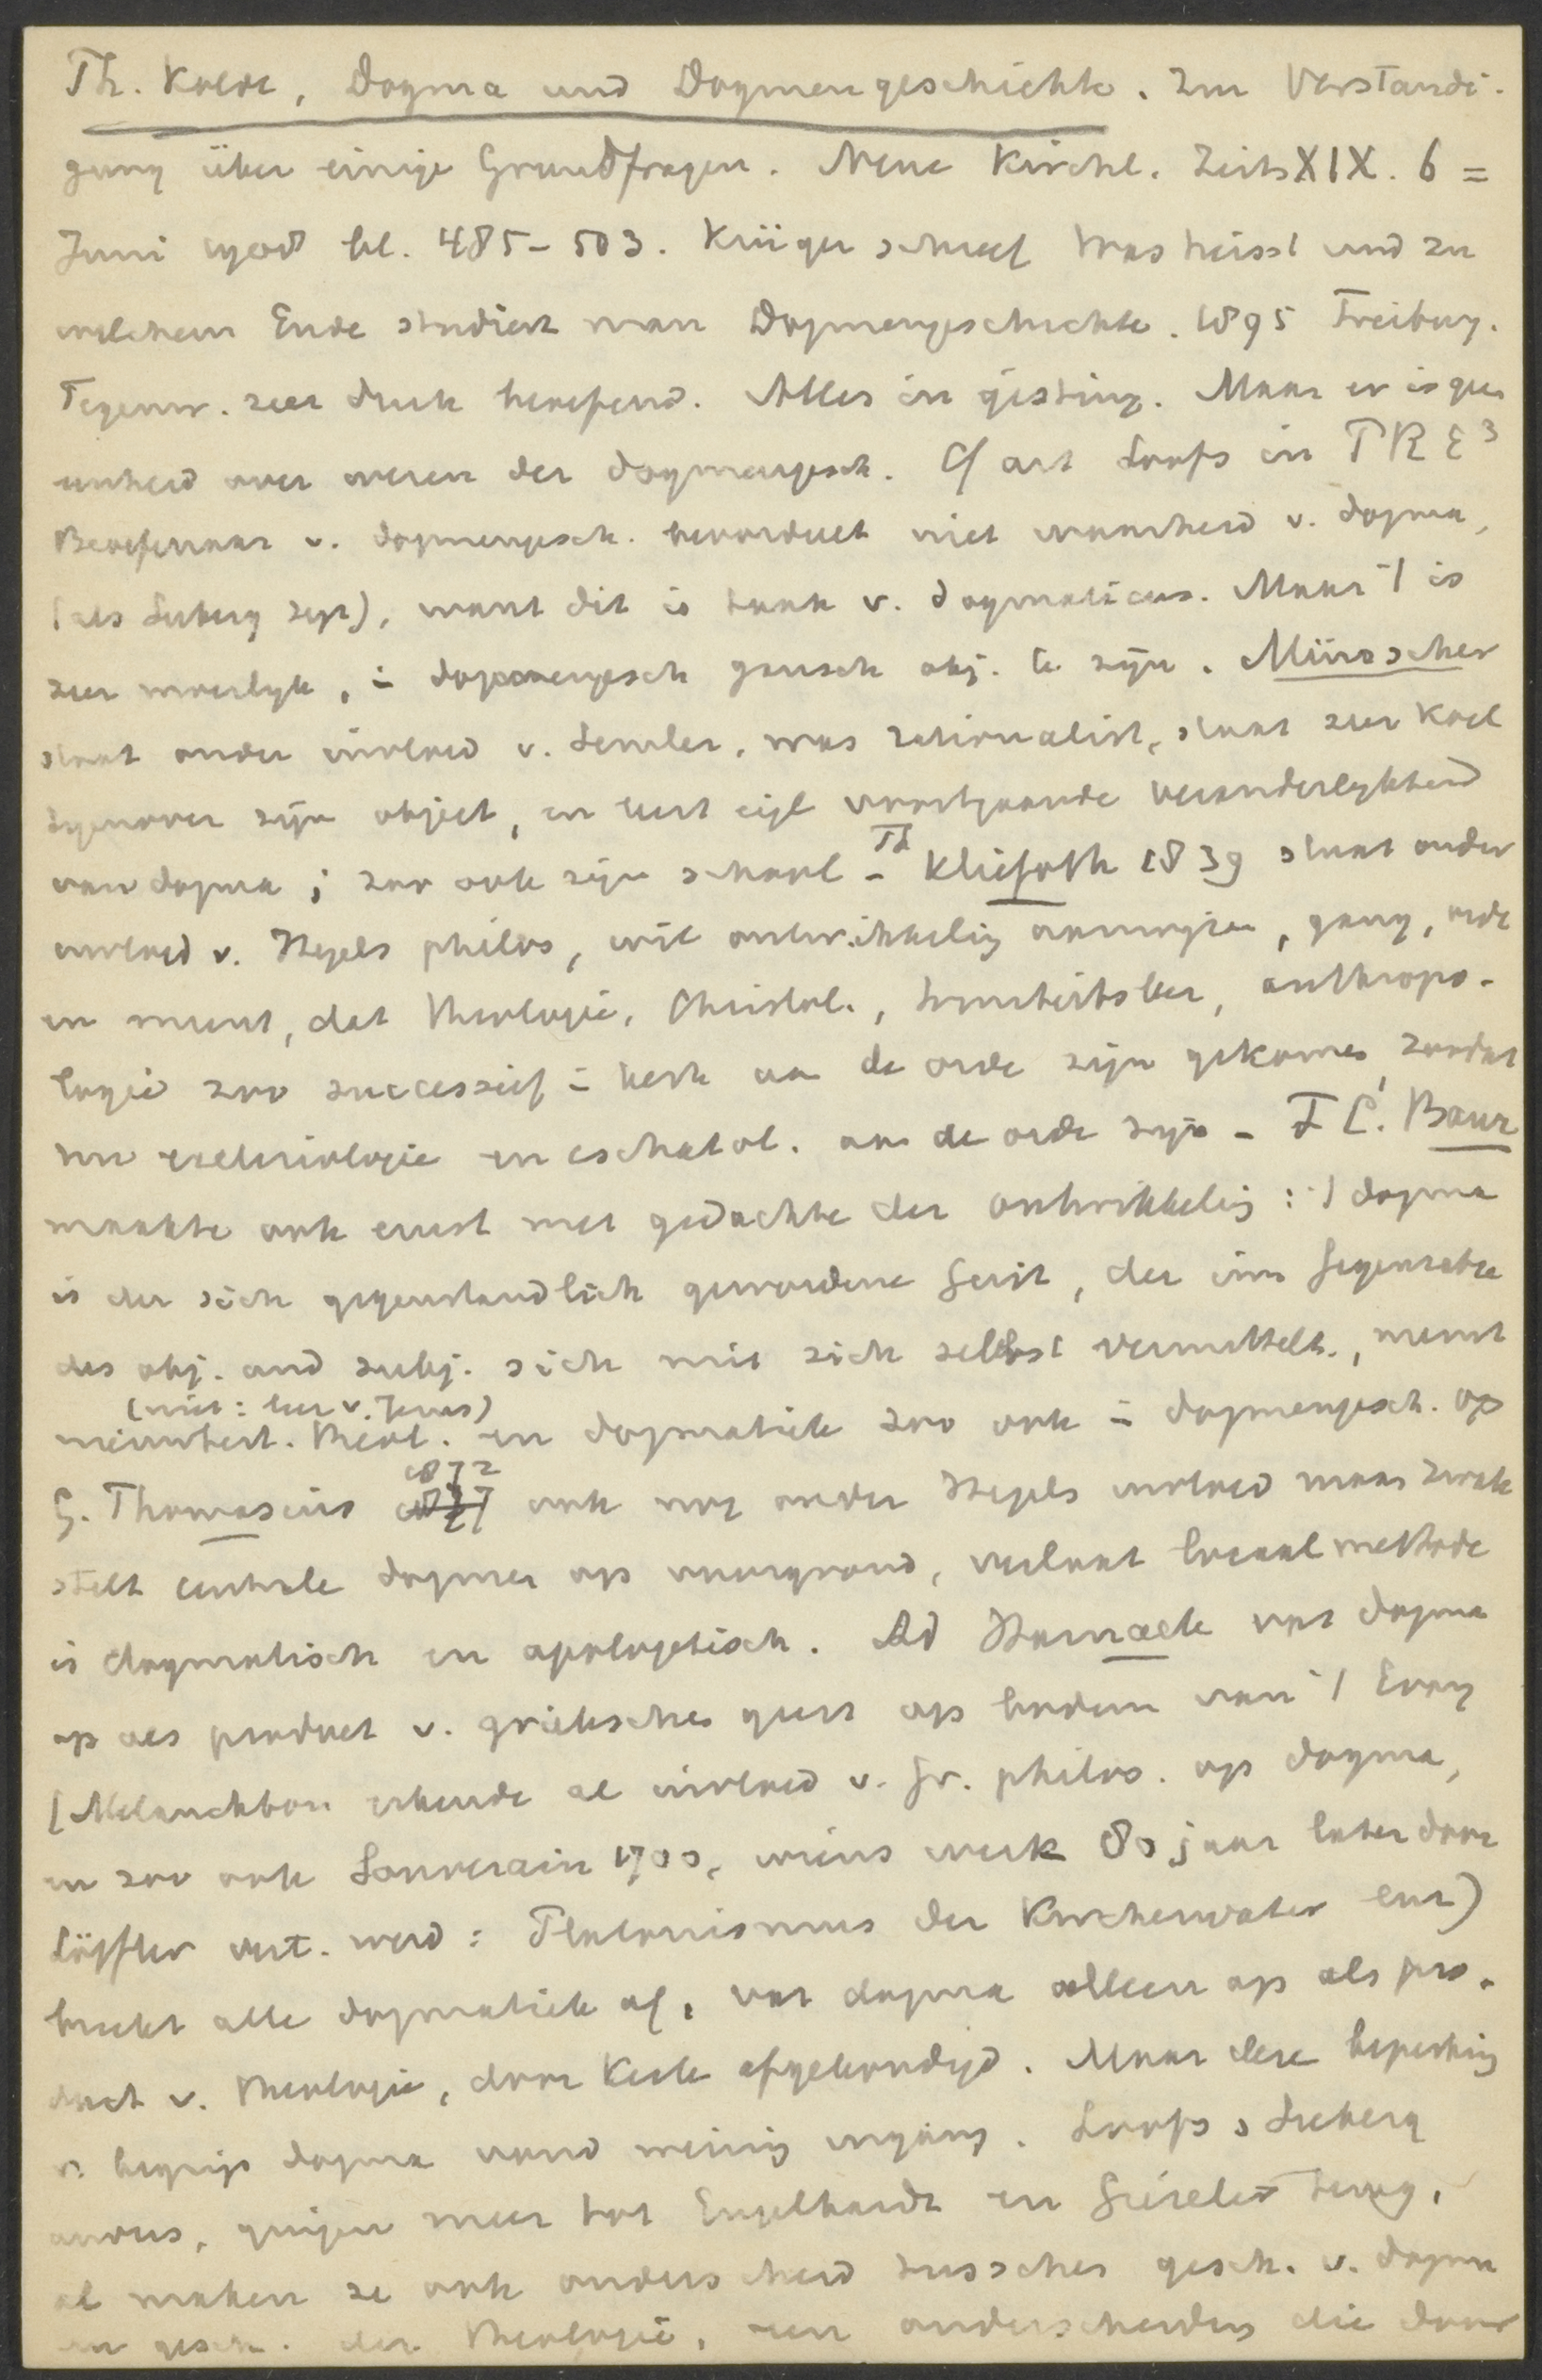 Th. Kolde, Dogma und Dogmengeschichte. Zur Verständi-
gung über einige Grundfragen. Neue Kirchl. Zeits XIX. 6 =
Juni 1908 bl. 485-503. Krüger schreef Was heisst und zu
welchem Ende studiert man Dogmengeschichte. 1895 Freiburg.
Tegenw. zeer druk beoefend. Alles in gisting. Maar er is geen
eenheid over wezen der dogmengesch. Cf art Loofs in PRE³
Beoefenaar v. dogmengesch. beoordeelt niet waarheid v. dogma,
(als Seeberg zegt), want dit is taak v. dogmaticus. Maar 't is
zeer moeilyk, i dogmengesch gansch obj. te zyn. Münscher
staat onder invloed v. Semler, was rationalist, staat zeer koel
tegenover zyn object, en leert eigl voortgaande veranderlykheid
van dogma; zoo ook zyn school - Th Kliefoth 1839 staat onder
invloed v. Hegels philos, wil ontwikkelig aanwyzen, gang, orde
en meent, dat theologie, Christol., , anthropo-
logie zoo successief i kerk aan de orde zyn gekomen, zoodat
nu ecclesiologie en eschatol. aan de orde zyn - F C. Baur
maakte ook ernst met gedachte der ontwikkelig : 't dogma
is der sich gegenstandlich gewordene Geist, der im Gegensatze
des obj. und subj. sich mit sich selbst vermittelt., neemt
(niet: leer v. Jezus)
nieuwtest. theol. en dogmatiek zoo ook i dogmengesch. op
G. Thomasius 1872 ook nog onder Hegels invloed maar zwak
stelt centrale dogmen op voorgrond, verlaat locaalmethode
is dogmatisch en apologetisch. Ad Harnack vat dogma
op als product v. griekschen geest op bodem van 't Evang
(Melanchton erkende al invloed v. Gr. philos. op dogma,
en zoo ook Souverain 1700, wiens werk 80 jaar later door
Löffler vert. werd: Platonismus der Kirchenvater enz)
breekt alle dogmatiek af, vat dogma alleen op als pro-
duct v. theologie, door kerk afgekondigd. Maar deze beperking
v. begrip dogma vond weinig ingang. Loofs, Seeberg
anders, gingen meer tot Engelhardt en Gieseler terug,
al maken ze ook onderscheid tusschen gesch. v. dogma
en gesch. der theologie, een onderscheiding die door